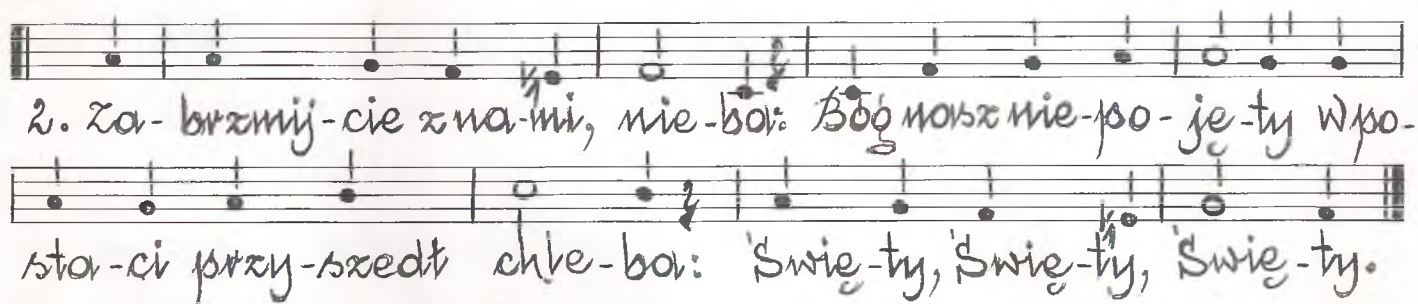 2. Za-brzmij-cie z na-mi, nie-ba: Bóg nasz nie-po-ję-ty W po-
sta-ci przy-szedł chle-ba: Świę-ty, Świę-ty, Świę-ty.